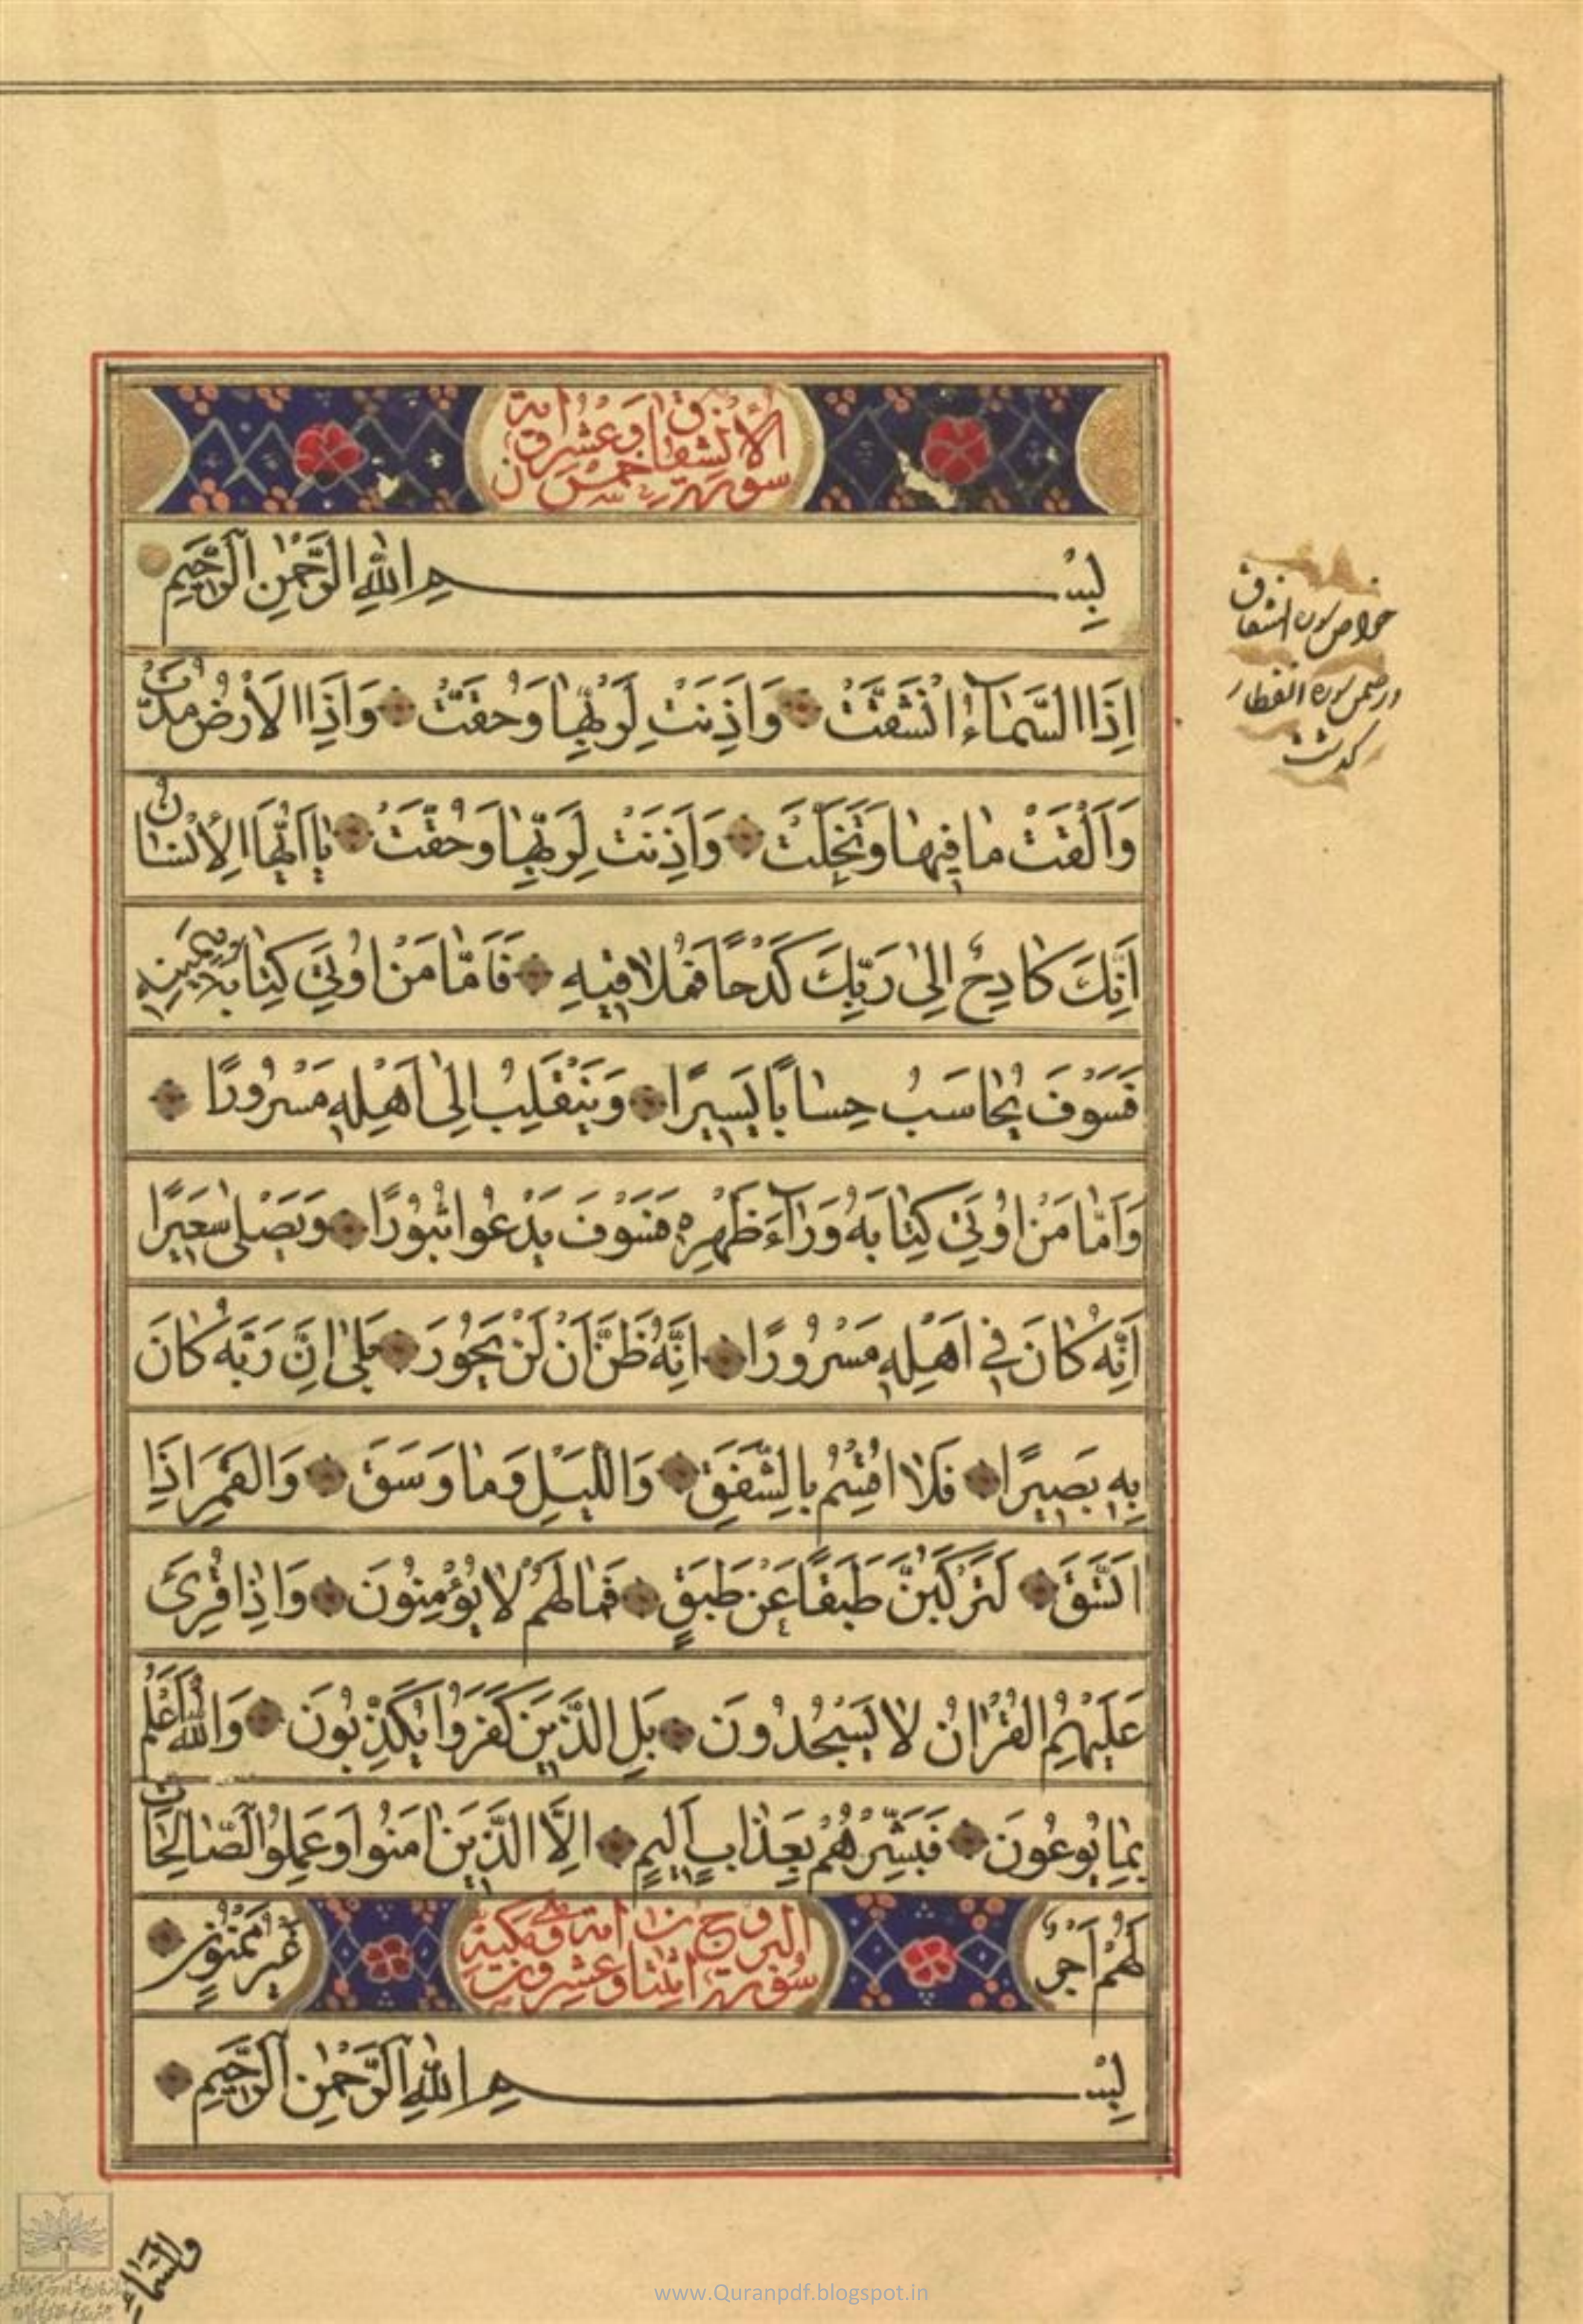 سورة الانشقاق خمس وعشرون آية
بِسْمِ اللهِ الرَّحْمٰنِ الرَّحِيمِ
اِذَا السَّمَاءُ انْشَقَّتْ وَاَذِنَتْ لِرَبِّهٰا وَحُقَّتْ وَاِذَا الْاَرْضُ مُدَّتْ
وَاَلْقَتْ مٰا فِيهٰا وَتَخَلَّتْ وَاَذِنَتْ لِرَبِّهٰا وَحُقَّتْ يٰا اَيُّهَا الْاِنْسٰانُ
اِنَّكَ كٰادِحٌ اِلىٰ رَبِّكَ كَدْحًا فَمُلٰاقِيهِ فَاَمّٰا مَنْ اُوتِيَ كِتٰابَهُ بِيَمِينِهِ
فَسَوْفَ يُحٰاسَبُ حِسٰابًا يَسِيرًا وَيَنْقَلِبُ اِلىٰ اَهْلِهِ مَسْرُورًا
وَاَمّٰا مَنْ اُوتِيَ كِتٰابَهُ وَرٰاءَ ظَهْرِهِ فَسَوْفَ يَدْعُوا ثُبُورًا وَيَصْلىٰ سَعِيرًا
اِنَّهُ كٰانَ فِي اَهْلِهِ مَسْرُورًا اِنَّهُ ظَنَّ اَنْ لَنْ يَحُورَ بَلىٰ اِنَّ رَبَّهُ كٰانَ
بِهِ بَصِيرًا فَلٰا اُقْسِمُ بِالشَّفَقِ وَاللَّيْلِ وَمٰا وَسَقَ وَالْقَمَرِ اِذَا
اتَّسَقَ لَتَرْكَبُنَّ طَبَقًا عَنْ طَبَقٍ فَمٰا لَهُمْ لٰا يُؤْمِنُونَ وَاِذٰا قُرِئَ
عَلَيْهِمُ الْقُرْاٰنُ لٰا يَسْجُدُونَ بَلِ الَّذِينَ كَفَرُوا يُكَذِّبُونَ وَاللهُ اَعْلَمُ
بِمٰا يُوعُونَ فَبَشِّرْهُمْ بِعَذٰابٍ اَلِيمٍ اِلَّا الَّذِينَ اٰمَنُوا وَعَمِلُوا الصّٰالِحٰاتِ
لَهُمْ اَجْرٌ غَيْرُ مَمْنُونٍ
سورة البروج اثنتا وعشرون آية مكية
بِسْمِ اللهِ الرَّحْمٰنِ الرَّحِيمِ
وَالسَّمٰاءِ
خواص سوره انشقاق
در ضمن سوره انفطار
گذشت
www.Quranpdf.blogspot.in